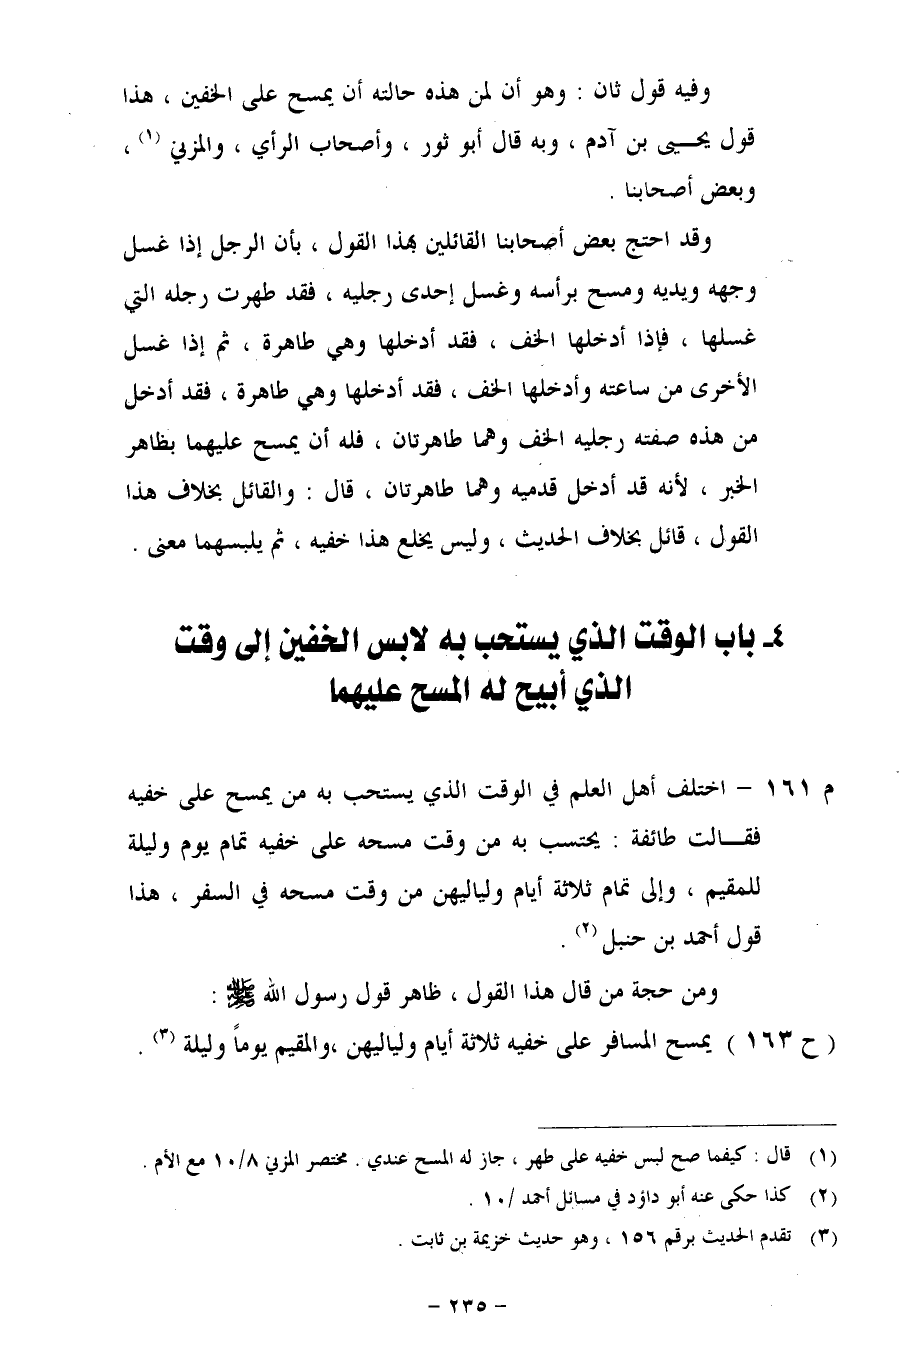 وفيه قول ثان : وهو أن لمن هذه حالته أن يمسح على الخفين ، هذا
قول يحــيى بن آدم ، وبه قال أبو ثور ، وأصحاب الرأي ، والمزني (١) ،
وبعض أصحابنا .
وقد احتج بعض أصحابنا القائلين بهذا القول ، بأن الرجل إذا غسل
وجهه ويديه ومسح برأسه وغسل إحدى رجليه ، فقد طهرت رجله التي
غسلها ، فإذا أدخلها الخف ، فقد أدخلها وهي طاهرة ، ثم إذا غسل
الأخرى من ساعته وأدخلها الخف ، فقد أدخلها وهي طاهرة ، فقد أدخل
من هذه صفته رجليه الخف وهما طاهرتان ، فله أن يمسح عليهما بظاهر
الخبر ، لأنه قد أدخل قدميه وهما طاهرتان ، قال : والقائل بخلاف هذا
القول ، قائل بخلاف الحديث ، وليس يخلع هذا خفيه ، ثم يلبسهما معنى .
٤ـ باب الوقت الذي يستحب به لابس الخفين إلى وقت
الذي أبيح له المسح عليهما
م ١٦١ – اختلف أهل العلم في الوقت الذي يستحب به من يمسح على خفيه
فقــالت طائفة : يحتسب به من وقت مسحه على خفيه تمام يوم وليلة
للمقيم ، وإلى تمام ثلاثة أيام ولياليهن من وقت مسحه في السفر ، هذا
قول أحمد بن حنبل (٢) .
ومن حجة من قال هذا القول ، ظاهر قول رسول الله ﷺ :
( ح ١٦٣ ) يمسح المسافر على خفيه ثلاثة أيام ولياليهن ،والمقيم يوماً وليلة (٣) .
(١) قال : كيفما صح لبس خفيه على طهر ، جاز له المسح عندي . مختصر المزني ١٠/٨ مع الأم .
(٢) كذا حكى عنه أبو داؤد في مسائل أحمد /١٠ .
(٣) تقدم الحديث برقم ١٥٦ ، وهو حديث خزيمة بن ثابت .
– ٢٣٥ –